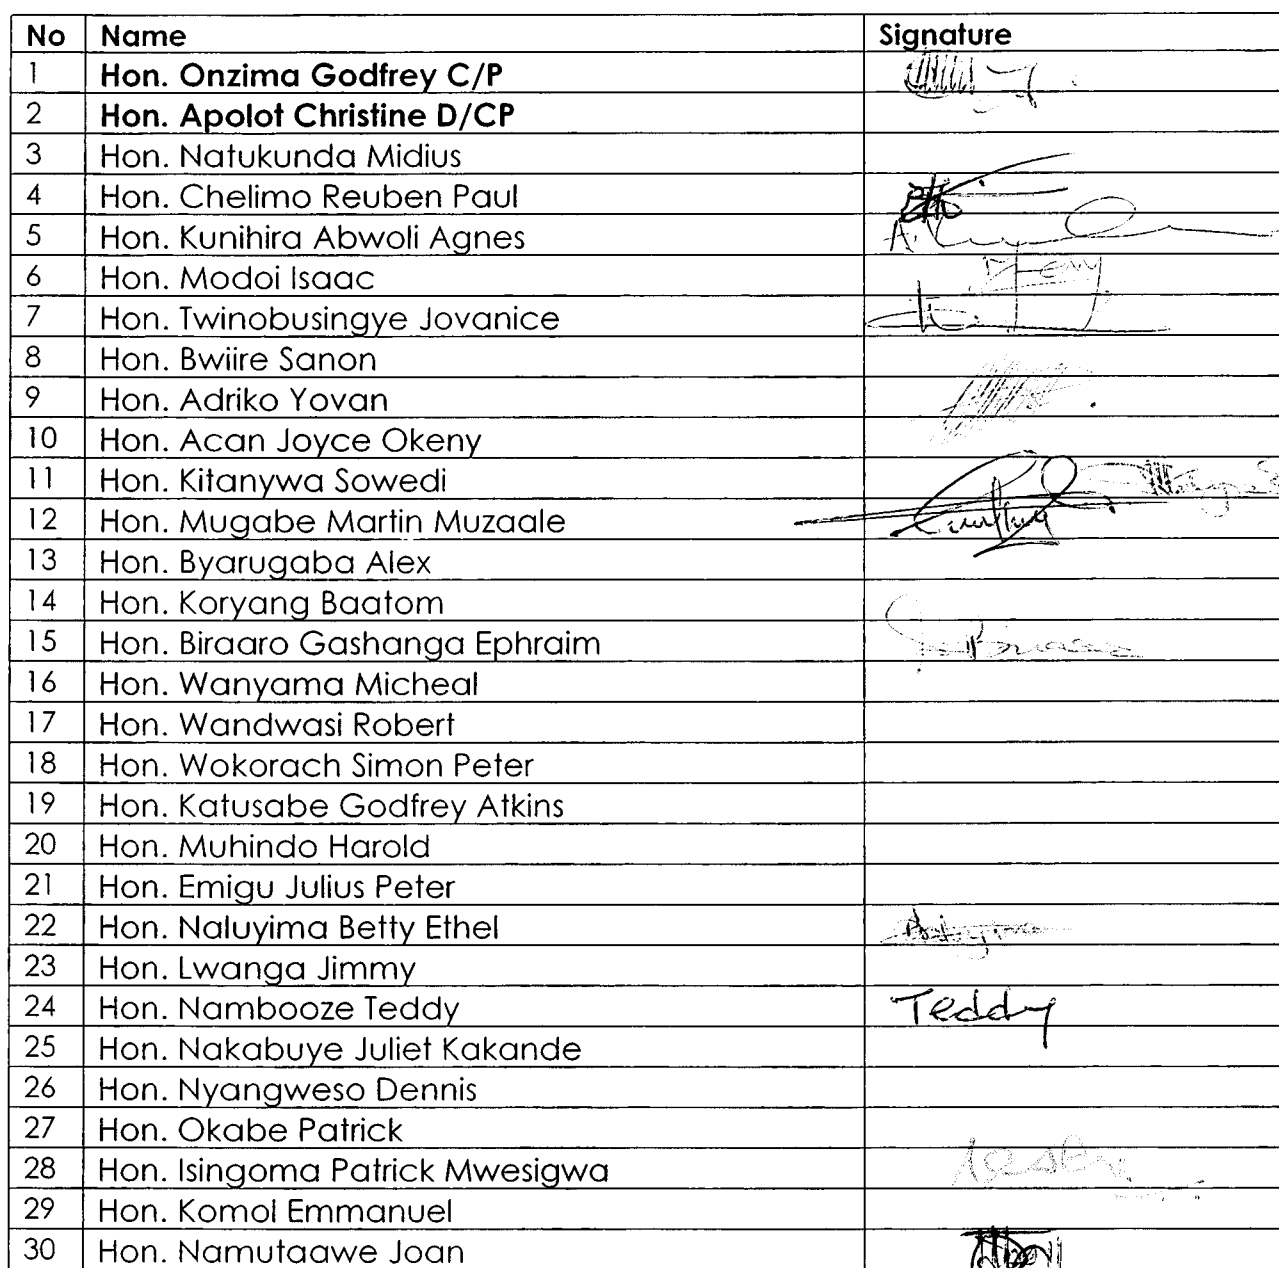 No Name Signature
1 Hon. Onzima Godfrey C/P
2 Hon. Apolot Christine D/CP
3 Hon. Natukunda Midius
4 Hon. Chelimo Reuben Paul
5 Hon. Kunihira Abwoli Agnes
6 Hon. Modoi Isaac
7 Hon. Twinobusingye Jovanice
8 Hon. Bwiire Sanon
9 Hon. Adriko Yovan
10 Hon. Acan Joyce Okeny
11 Hon. Kitanywa Sowedi
12 Hon. Mugabe Martin Muzaale
13 Hon. Byarugaba Alex
14 Hon. Koryang Baatom
15 Hon. Biraaro Gashanga Ephraim
16 Hon. Wanyama Micheal
17 Hon. Wandwasi Robert
18 Hon. Wokorach Simon Peter
19 Hon. Katusabe Godfrey Atkins
20 Hon. Muhindo Harold
21 Hon. Emigu Julius Peter
22 Hon. Naluyima Betty Ethel
23 Hon. Lwanga Jimmy
24 Hon. Nambooze Teddy Teddy
25 Hon. Nakabuye Juliet Kakande
26 Hon. Nyangweso Dennis
27 Hon. Okabe Patrick
28 Hon. Isingoma Patrick Mwesigwa
29 Hon. Komol Emmanuel
30 Hon. Namutaawe Joan